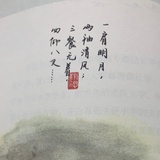 一肩明月，
两袖清风，
三餐元〇
四仰八叉……